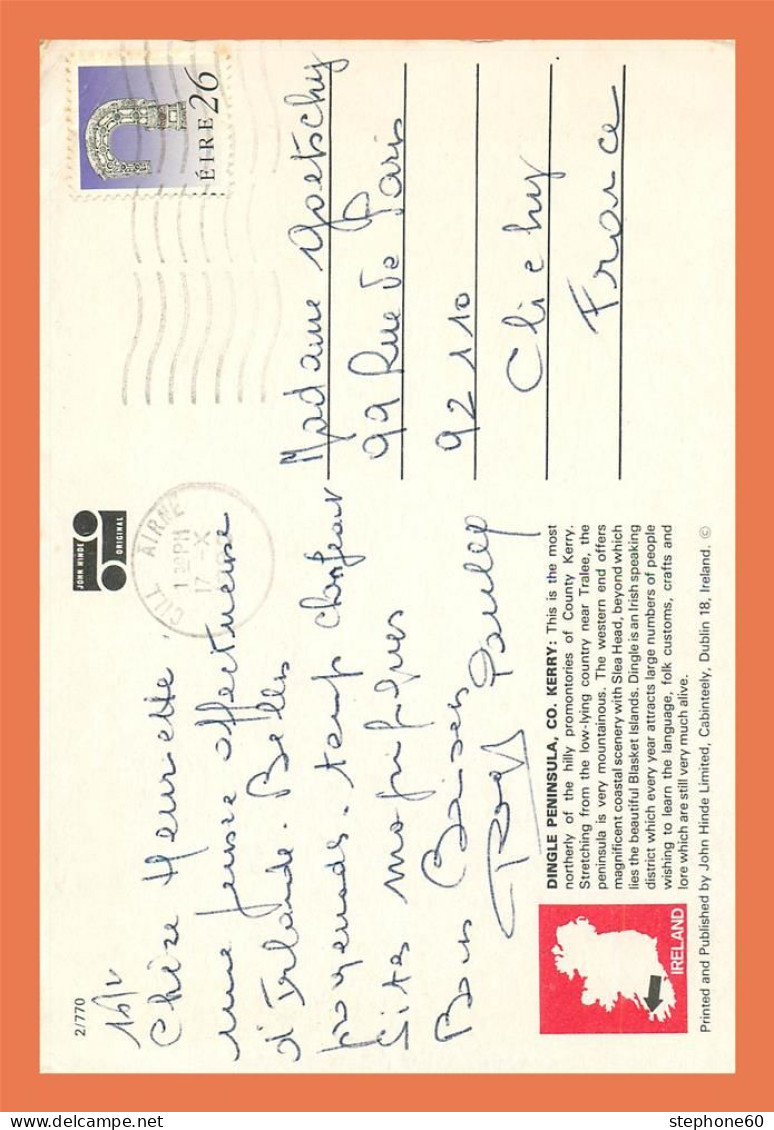 2/770
JOHN HINDE
ORIGINAL
CILL AIRNE
17 X
ÉIRE 26
Chère Henriette,
une pensée affectueuse
d'Irlande. Belles
Sites magnifiques
Bons Baisers
Madame Goetschy
99 Rue de Paris
92110
Clichy
France
DINGLE PENINSULA, CO. KERRY: This is the most
northerly of the hilly promontories of County Kerry.
Stretching from the low-lying country near Tralee, the
peninsula is very mountainous. The western end offers
magnificent coastal scenery with Slea Head, beyond which
lies the beautiful Blasket Islands. Dingle is an Irish speaking
district which every year attracts large numbers of people
wishing to learn the language, folk customs, crafts and
lore which are still very much alive.
IRELAND
Printed and Published by John Hinde Limited, Cabinteely, Dublin 18, Ireland. ©
stephone60